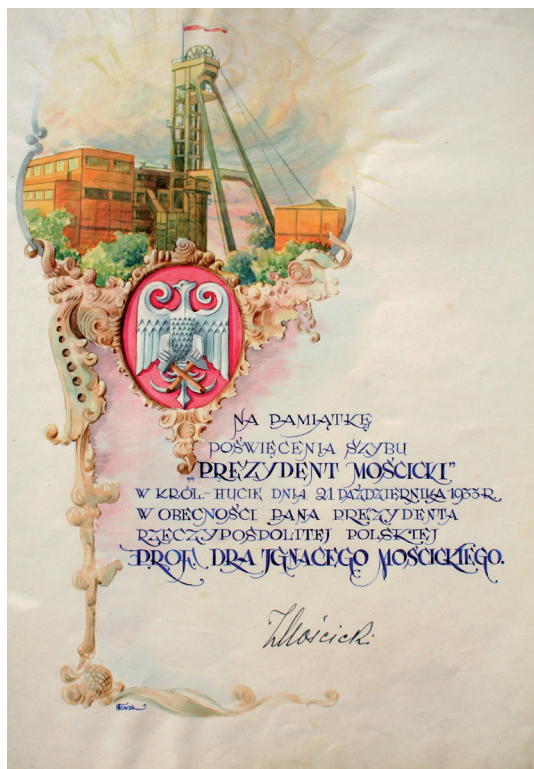 NA PAMIĄTKĘ
POŚWIĘCENIA SZYBU
„PREZYDENT MOŚCICKI”
W KRÓL.-HUCIE DNIA 21 PAŹDZIERNIKA 1933 R.
W OBECNOŚCI PANA PREZYDENTA
RZECZYPOSPOLITEJ POLSKIEJ
PROF. DRA IGNACEGO MOŚCICKIEGO.
IMościcki